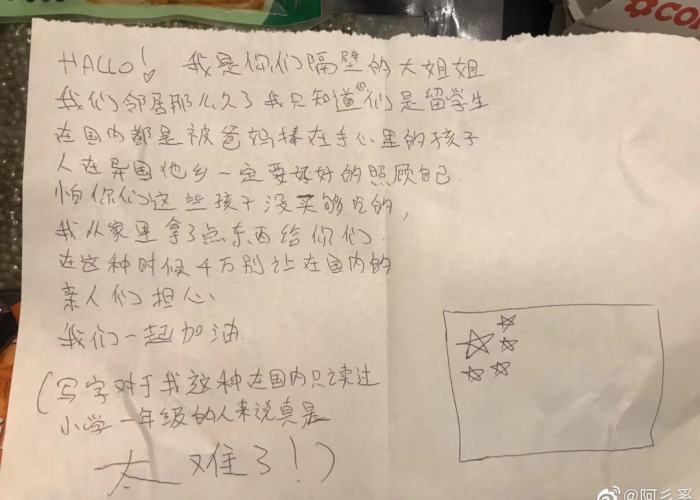 HALLO! 我是你们隔壁的大姐姐
我们邻居那么久了我只知道你们是留学生
在国内都是被爸妈捧在手心里的孩子
人在异国他乡一定要好好的照顾自己.
怕你们这些孩子没买够吃的,
我从家里拿了点东西给你们.
在这种时候千万别让在国内的
亲人们担心.
我们一起加油.
(写字对于我这种在国内只读过
小学一年级的人来说真是
太难了!)
@阿乡爱
CO